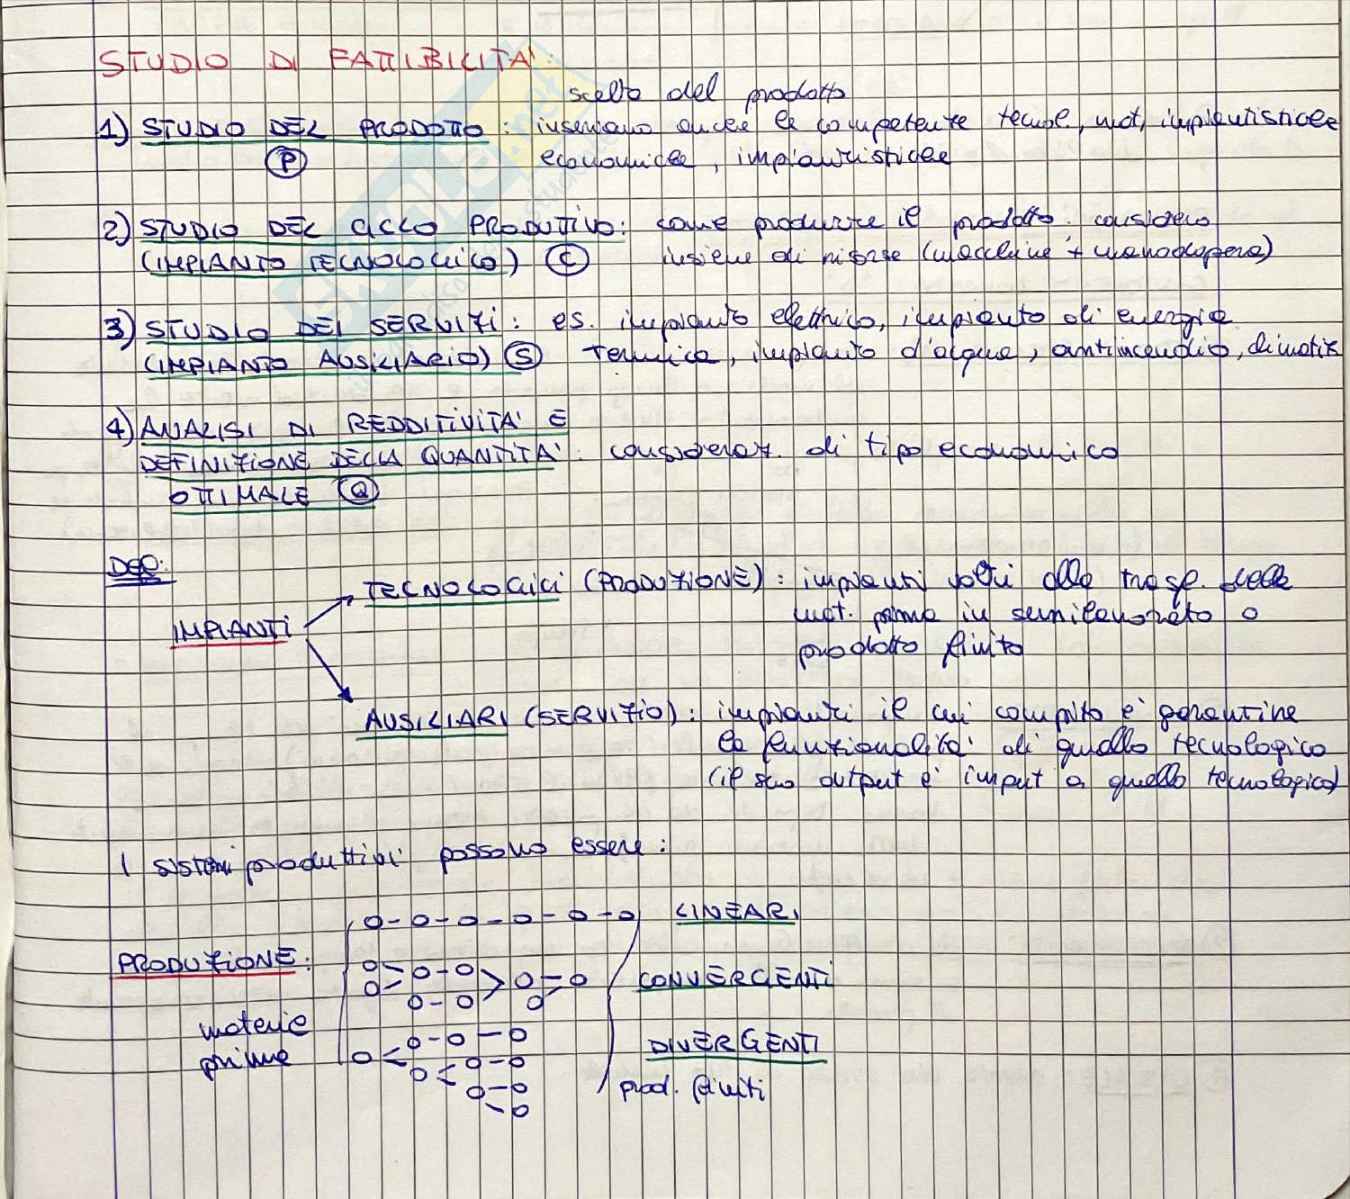 STUDIO DI FATTIBILITA':
scelta del prodotto
1) STUDIO DEL PRODOTTO: inseriamo anche le competenze tecniche, mat, impiantistiche
(P) economiche, impiantistiche
2) STUDIO DEL CICLO PRODUTTIVO: come produrre il prodotto. considero
(IMPIANTO TECNOLOGICO) (C) insieme di risorse (macchine + manodopera)
3) STUDIO DEI SERVIZI: es. impianto elettrico, impianto di energia
(IMPIANTO AUSILIARIO) (S) termica, impianto d'acqua, antincendio,
4) ANALISI DI REDDITIVITA' E
DEFINIZIONE DELLA QUANTITA': consideraz. di tipo economico
OTTIMALE (Q)
DEF:
TECNOLOGICI (PRODUZIONE): impianti volti alla trasf. delle
IMPIANTI mat. prime in semilavorato o
prodotto finito
AUSILIARI (SERVIZIO): impianti il cui compito e' garantire
la funzionalita' di quello tecnologico
(il suo output e' imput a quello tecnologico)
I sistemi produttivi possono essere:
LINEARI
PRODUZIONE:
CONVERGENTI
materie
prime
DIVERGENTI
prod. finiti